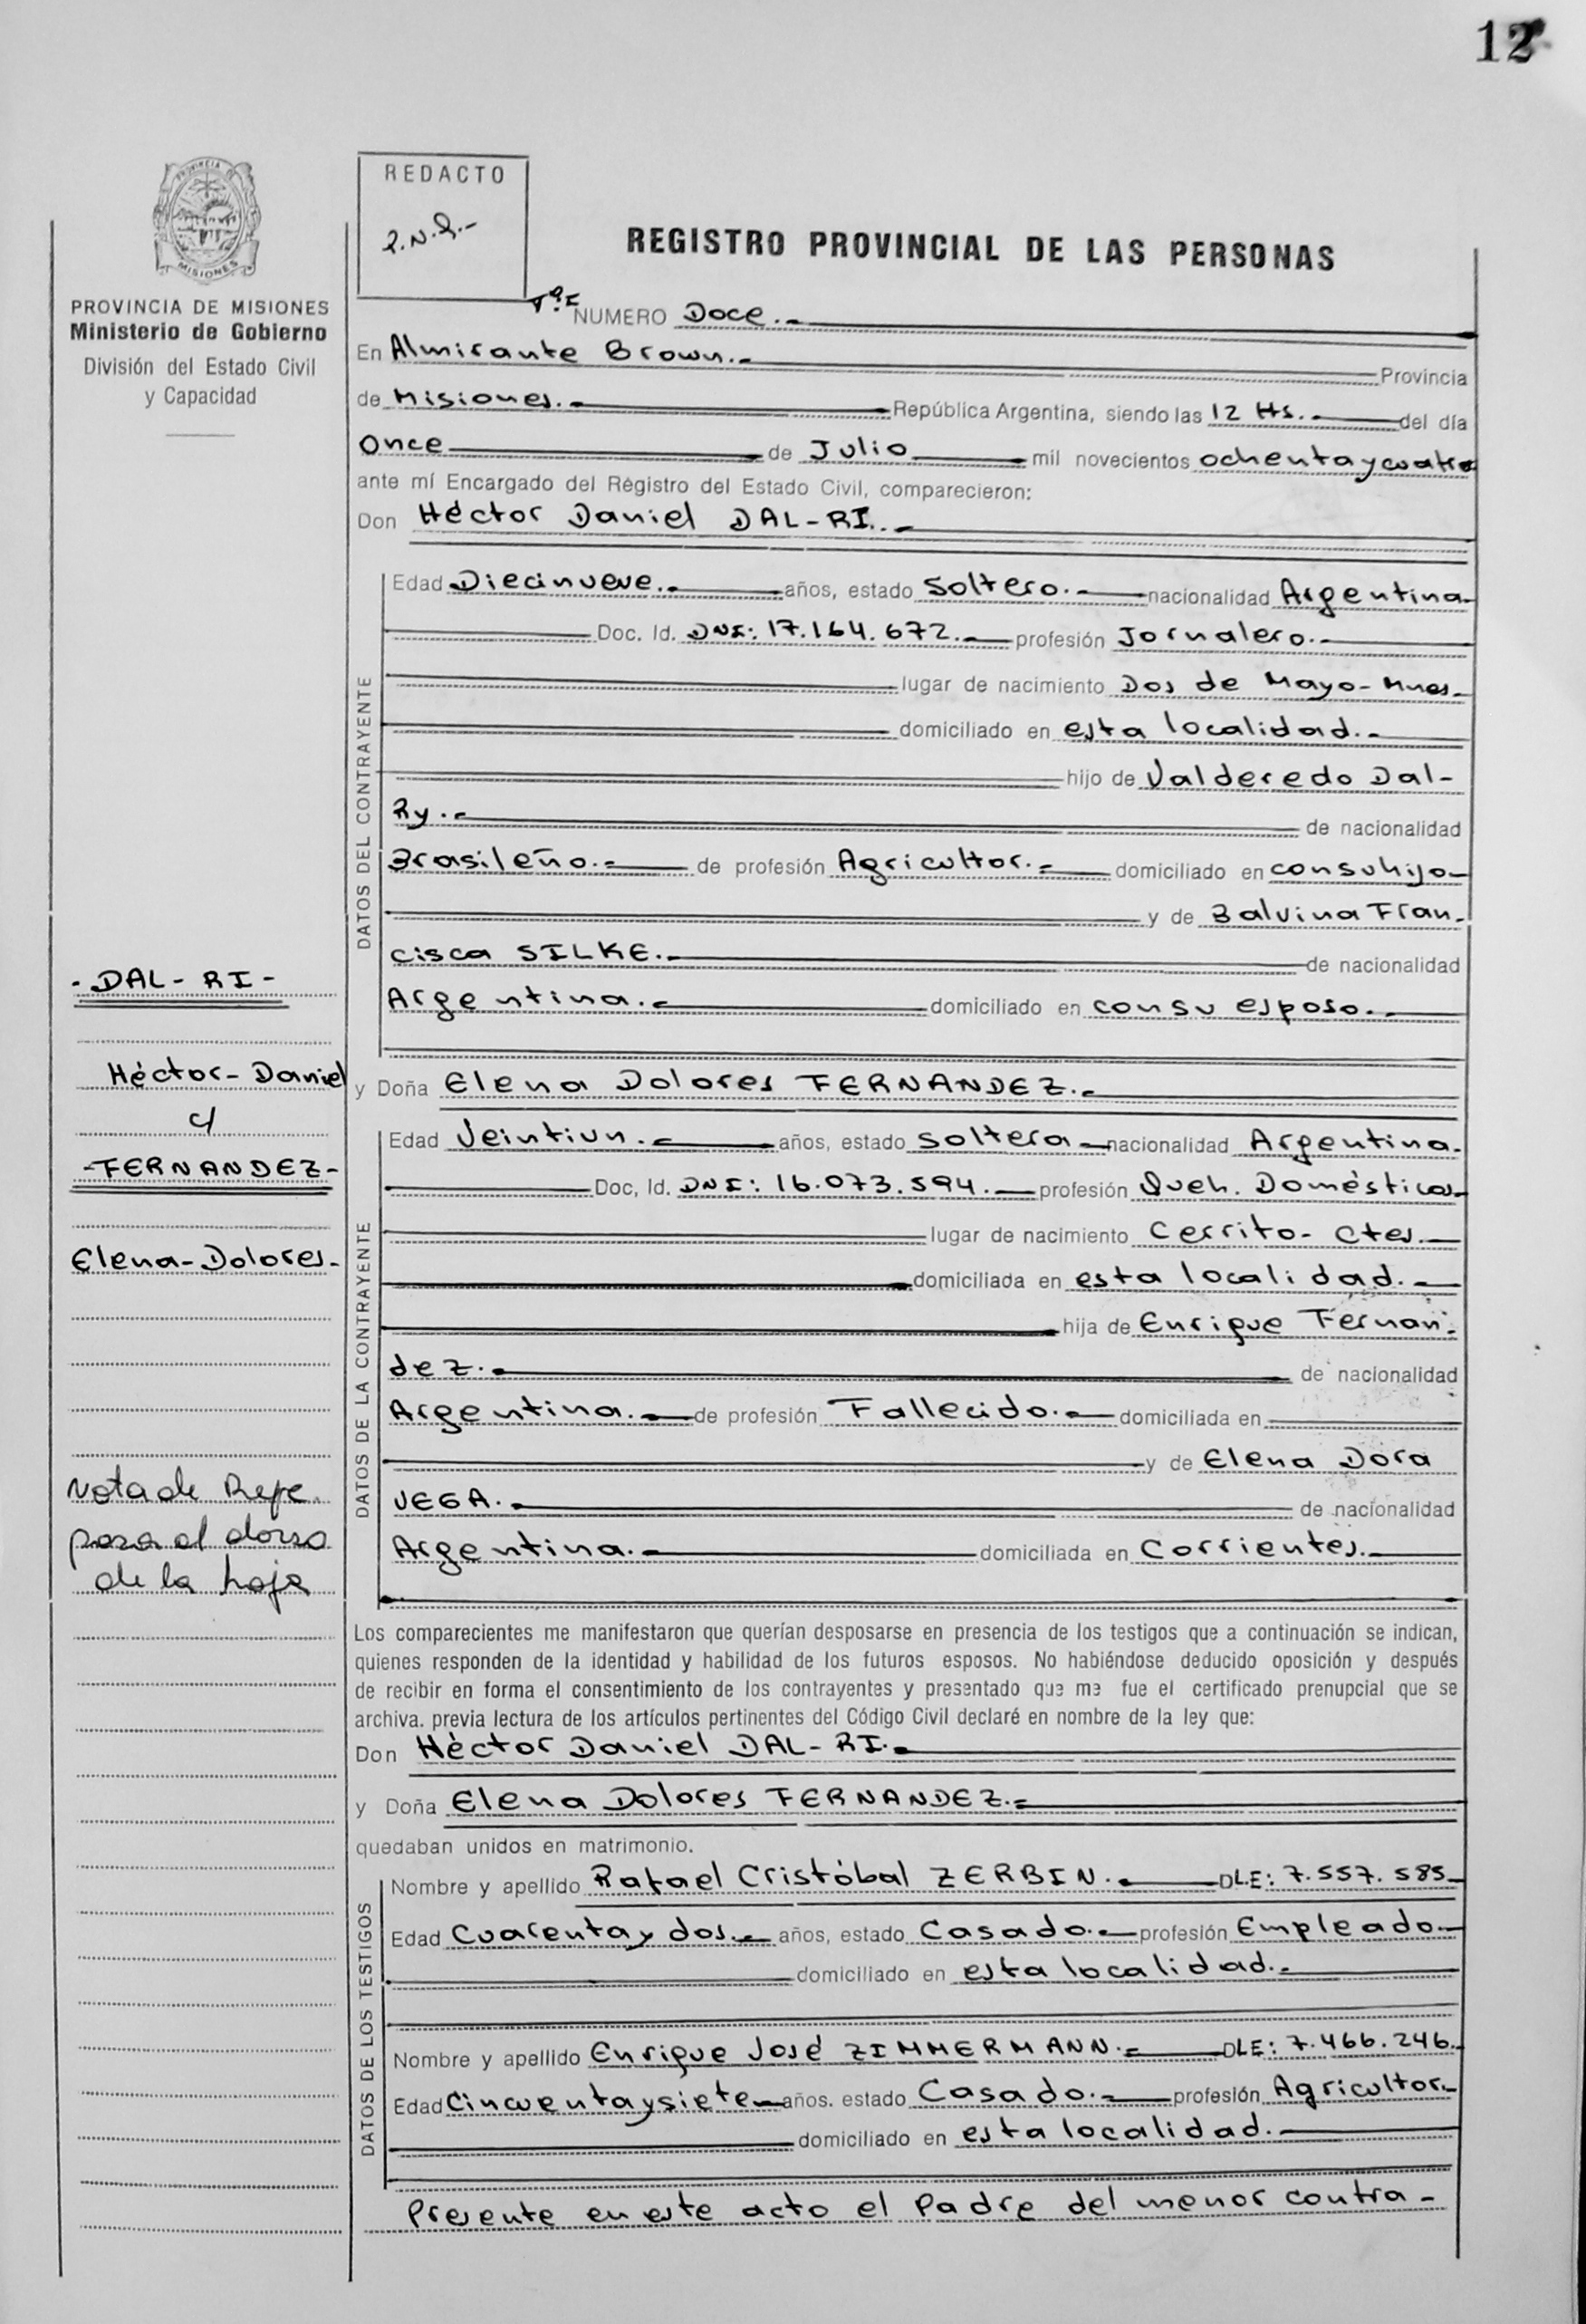 12
PROVINCIA DE
MISIONES
PROVINCIA DE MISIONES
Ministerio de Gobierno
División del Estado Civil
y Capacidad
REDACTO
REGISTRO PROVINCIAL DE LAS PERSONAS
NUMERO Doce.-
En Almirante Brown.- Provincia
de Misiones.- República Argentina, siendo las 12 Hs.- del día
Once de Julio mil novecientos ochenta y cuatro
ante mí Encargado del Registro del Estado Civil, comparecieron:
Don Héctor Daniel DAL-RI.-
DATOS DEL CONTRAYENTE
Edad Diecinueve.- años, estado Soltero.- nacionalidad Argentina-
Doc. Id. DNI: 17.164.672.- profesión Jornalero.-
lugar de nacimiento Dos de Mayo- Mnes-
domiciliado en esta localidad.-
hijo de Valderedo Dal-
Ry.- de nacionalidad
Brasileño.- de profesión Agricultor.- domiciliado en con su hijo-
y de Balvina Fran-
cisca SILKE.- de nacionalidad
Argentina.- domiciliado en con su esposo.-
- DAL - RI -
Héctor- Daniel
c/
-FERNANDEZ-
Elena-Dolores-
Nota de Refe.
pasa al dorso
de la hoja
y Doña Elena Dolores FERNANDEZ.-
DATOS DE LA CONTRAYENTE
Edad Veintiun.- años, estado soltera- nacionalidad Argentina.-
Doc, Id. DNI: 16.073.594.- profesión Queh. Domésticos-
lugar de nacimiento Cerrito- Ctes.-
domiciliada en esta localidad.-
hija de Enrique Fernan-
dez.- de nacionalidad
Argentina.- de profesión Fallecido.- domiciliada en
y de Elena Dora
VEGA.- de nacionalidad
Argentina.- domiciliada en Corrientes.-
Los comparecientes me manifestaron que querían desposarse en presencia de los testigos que a continuación se indican,
quienes responden de la identidad y habilidad de los futuros esposos. No habiéndose deducido oposición y después
de recibir en forma el consentimiento de los contrayentes y presentado que me fue el certificado prenupcial que se
archiva. previa lectura de los artículos pertinentes del Código Civil declaré en nombre de la ley que:
Don Héctor Daniel DAL-RI.-
y Doña Elena Dolores FERNANDEZ.-
quedaban unidos en matrimonio.
DATOS DE LOS TESTIGOS
Nombre y apellido Rafael Cristóbal ZERBIN.- DLE: 7.557.585-
Edad Cuarenta y dos.- años, estado Casado.- profesión Empleado.-
domiciliado en esta localidad.-
Nombre y apellido Enrique José ZIMMERMANN.- DLE: 7.466.246.
Edad Cincuenta y siete- años. estado Casado.- profesión Agricultor.-
domiciliado en esta localidad.-
Presente en este acto el Padre del menor contra-